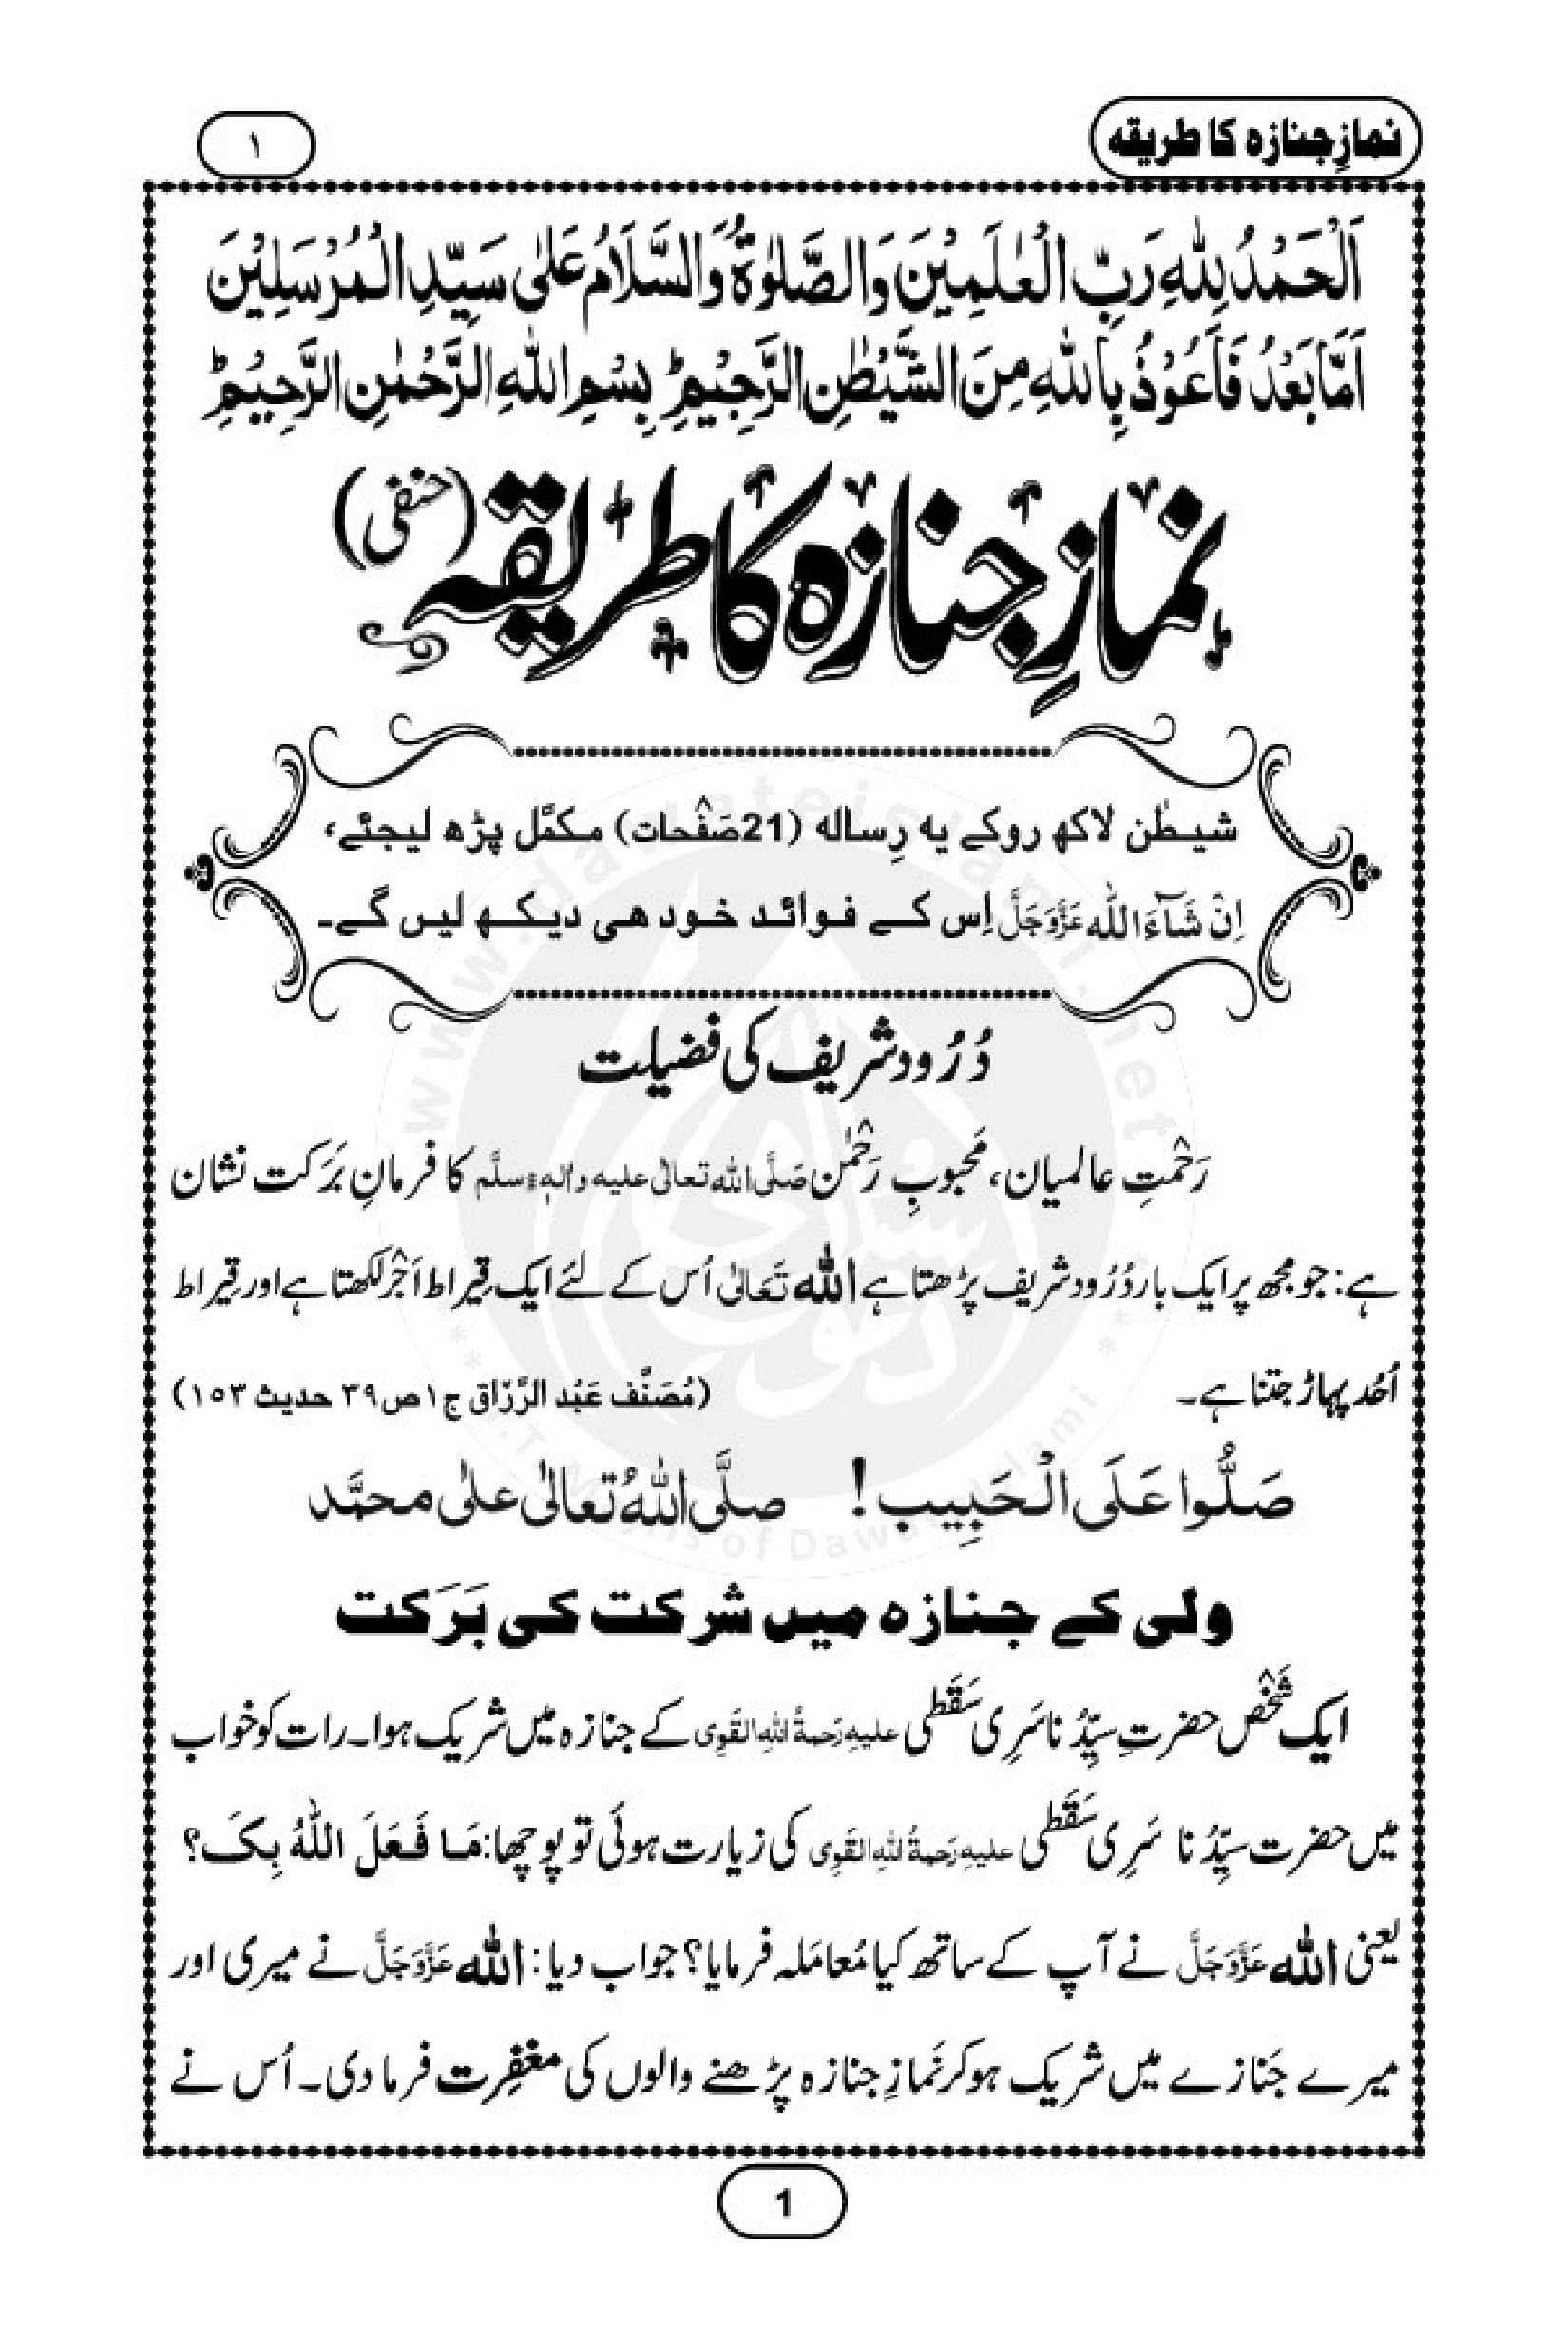 نمازِ جنازہ کا طریقہ
۱
اَلْحَمْدُ لِلّٰہِ رَبِّ الْعٰلَمِیْنَ وَالصَّلٰوۃُ وَالسَّلَامُ عَلٰی سَیِّدِ الْمُرْسَلِیْنَ
اَمَّا بَعْدُ فَاَعُوْذُ بِاللّٰہِ مِنَ الشَّیْطٰنِ الرَّجِیْمِؕ بِسْمِ اللّٰہِ الرَّحْمٰنِ الرَّحِیْمِؕ
نمازِ جنازہ کا طریقہ (حنفی)
شیطٰن لاکھ روکے یہ رِسالہ (21صَفْحات) مکمَّل پڑھ لیجئے،
اِنْ شَآءَ اللّٰہ عَزَّوَجَلَّ اِس کے فوائد خود ھی دیکھ لیں گے۔
دُرُود شریف کی فضیلت
رَحْمتِ عالمیان، مَحبوبِ رَحْمٰن صَلَّی اللّٰہ تعالٰی علیہ واٰلہٖ وسلَّم کا فرمانِ بَرَکت نشان
ہے: جو مجھ پر ایک بار دُرُود شریف پڑھتا ہے اللّٰہ تَعَالٰی اُس کے لئے ایک قِیراط اَجْر لکھتا ہے اور قِیراط
اُحُد پہاڑ جتنا ہے۔ (مُصَنَّف عَبْد الرَّزّاق ج۱ ص۳۹ حدیث ۱۵۳)
صَلُّوا عَلَی الْحَبِیب! صلَّی اللّٰہُ تعالٰی علٰی محمَّد
ولی کے جنازہ میں شرکت کی بَرَکت
ایک شَخْص حضرتِ سیِّدُنا سَرِی سَقَطی علیہِ رَحمۃُ اللّٰہِ القَوِی کے جنازہ میں شریک ہوا۔ رات کو خواب
میں حضرت سیِّدُنا سَرِی سَقَطی علیہِ رَحمۃُ اللّٰہِ القَوِی کی زیارت ہوئی تو پوچھا: مَا فَعَلَ اللّٰہُ بِکَ؟
یعنی اللّٰہ عَزَّوَجَلَّ نے آپ کے ساتھ کیا مُعامَلہ فرمایا؟ جواب دیا: اللّٰہ عَزَّوَجَلَّ نے میری اور
میرے جَنازے میں شریک ہو کر نَمازِ جنازہ پڑھنے والوں کی مغفِرت فرما دی۔ اُس نے
1
www.dawateislami.net